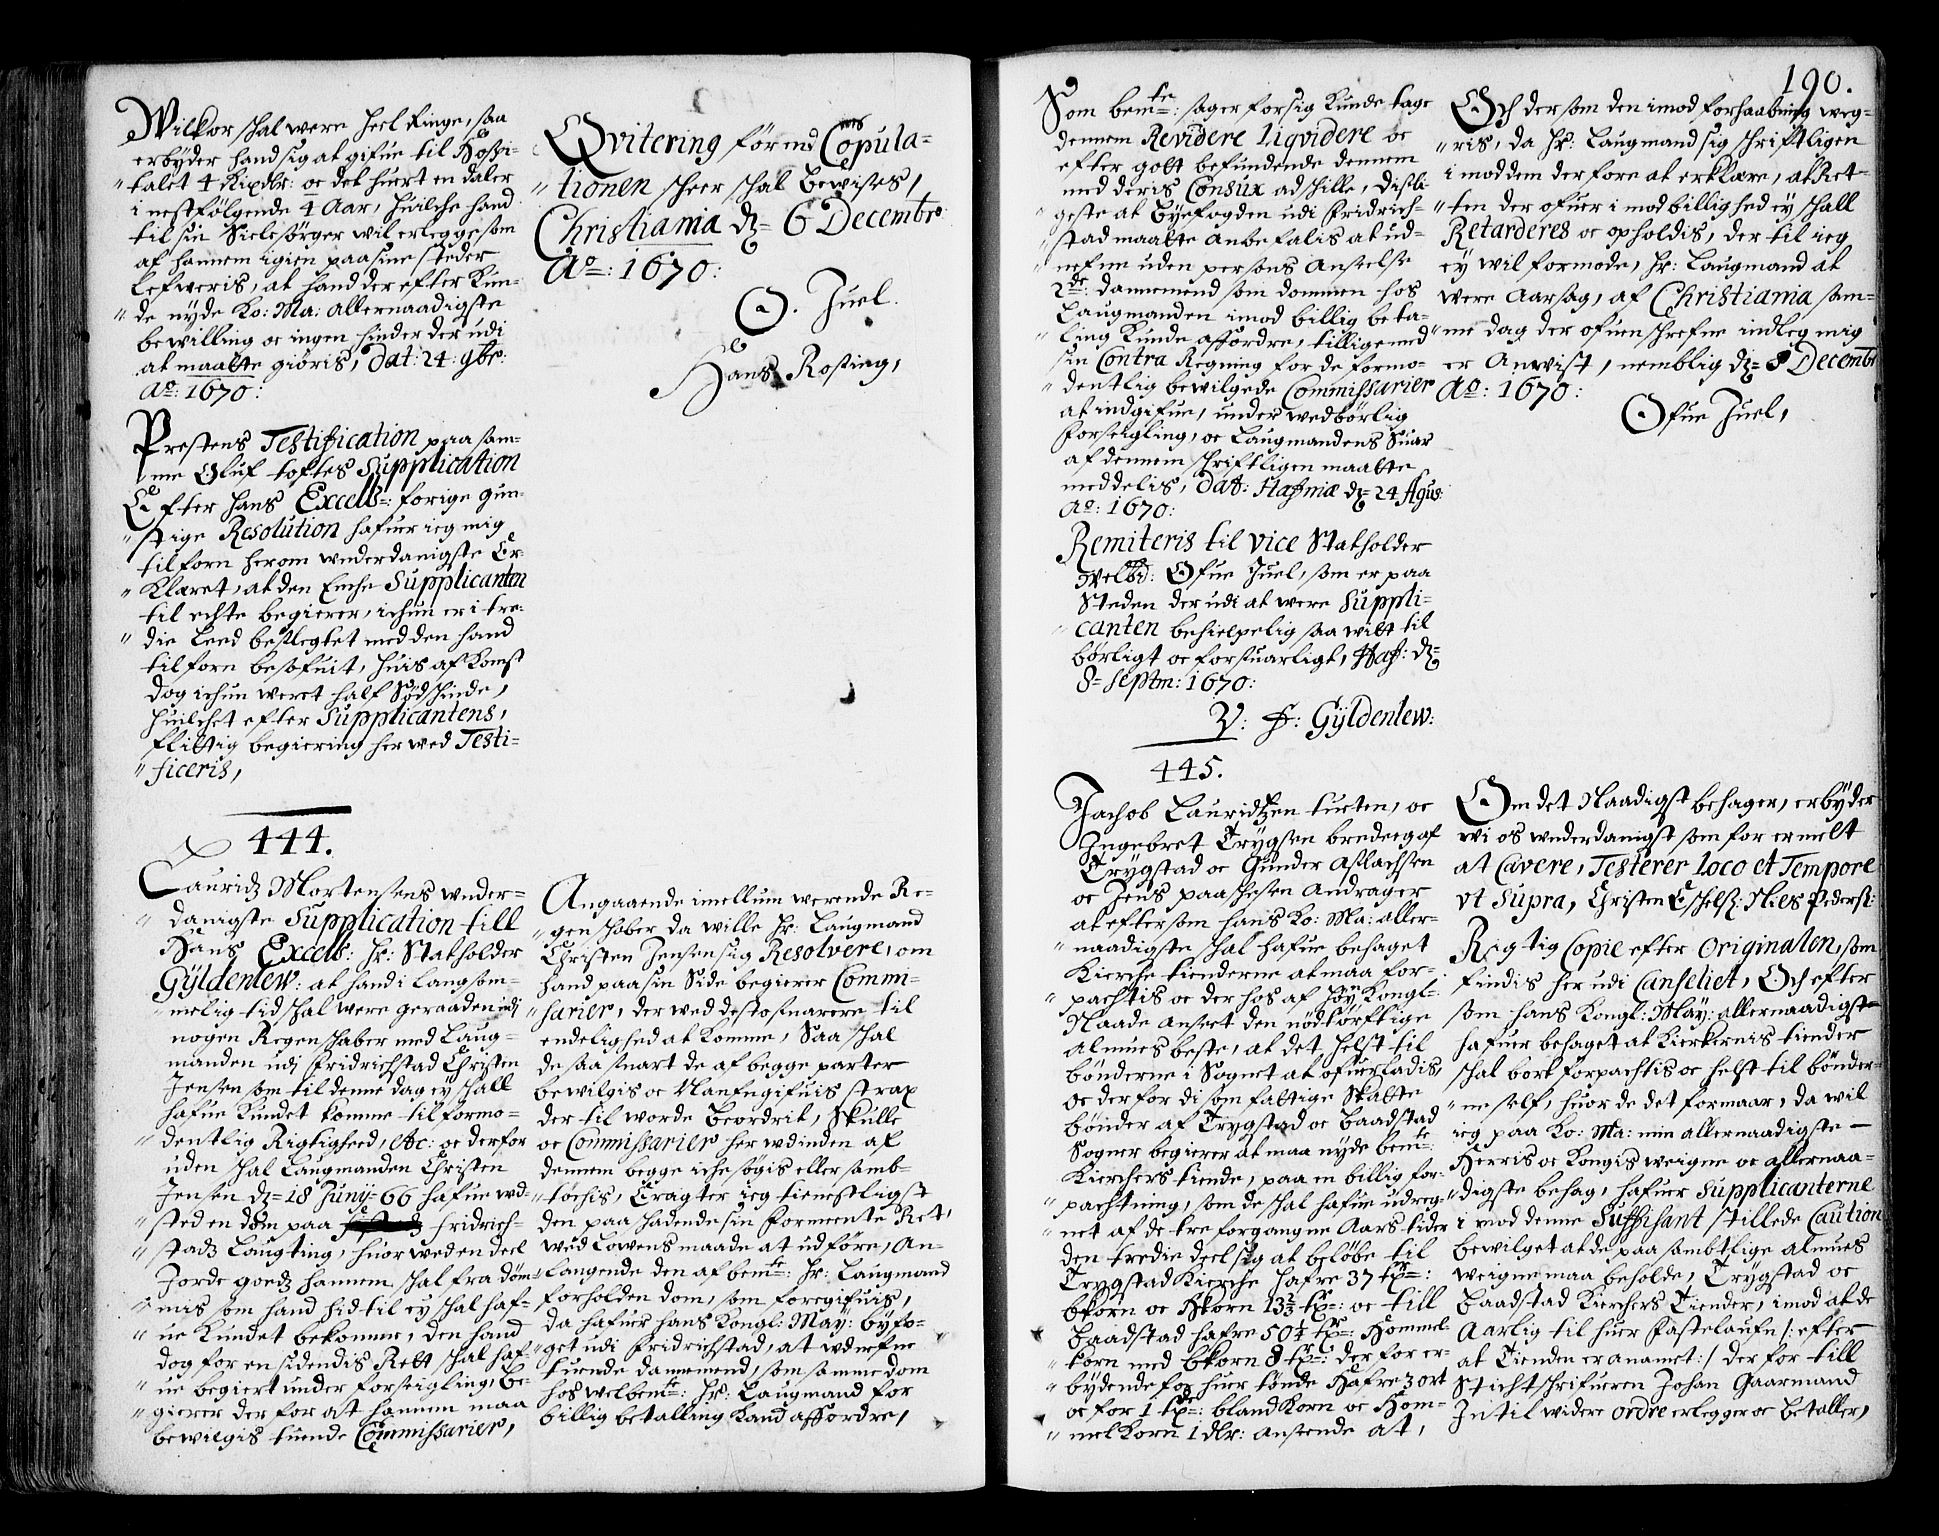 Wilkor schal were heel Ringe, saa
erbyder hand sig at gifue til Hospi-
" talet 4 Rixdlr: oc det huert en daler
i nestfølgende 4 Aar, huilche hand
til sin Sielesørger wil erlegge som
af hannem igien paa sine steder
Lefweris, at hand der efter Kun-
" de nyde Ko: Ma: allernaadigste
bewilling oc ingen hinder der udi
at maatte giøris, Dat: 24: 9br:
Ao: 1670:
Prestens Testification paa sam-
me Oluf toftes Supplication
Efter hans Excell: forige gun-
" stige Resolution hafuer ieg mig
tilforn herom underdanigste Er-
" Klaret, at den Enche Supplicanten
til echte begierer, ichun er i tre-
" die Leed beslegtet med den hand
tilforn besofuit, huis af Komst
dog ichun weret half Sødschinde,
huilchet efter Supplicantens,
flittig begiering her wed Testi-
" ficeris,
444.
Lauridz Mortensens under-
" danigste Supplication till
Hans Excell: Hr: Statholder
Gyldenlew: at hand i langsom-
" melig tid schal were geraaden udi
nogen Regenschaber med Laug-
manden udi Fridrichstad Christen
Jensen som til denne dag ey schall
hafue Kundet komme til formo-
" dentlig Rigtighed, etc: oc derfor
uden schal Laugmanden Christen
Jensen dz= 18 Juny= 66 hafue ud-
" sted en dom paa Fridrich-
" stadz Laugting, huor wed en deel
Jorde goedz hannem schal fra døm-
" mis som hand hid til ey schal haf-
" ue Kundet bekomme, den hand
dog for en sidendis Rett schal haf-
" ue begiert under forseigling, Be-
" gierer der for at hannem maa
bewilgis tuende Commissarier,
Qvitering førend Copula-
" tionen scheer schal bewises,
Christiania dz= 6 Decembr:
Ao: 1670:
O. Juel.
Hans Rosing,
Angaaende imellum werende Re-
" genschaber da wille Hr: Laugmand
Christen Jensen sig Resolvere, om
hand paa sin Side begierer Commi-
" sarier, der wed desto snarere til
endelighed at komme, Saa schal
de saa snart de af begge parter
bewilgis oc Nanfngifuis strax
der til worde Beordrit, Skulle
oc Commissarier her udinden af
dennem begge iche søgis eller samb-
" tøchis, Tragter ieg tienestligst
den paa hadende sin formeente Ret,
wed Lowens maade at udføre, An-
" langende den af bemte: Hr: Laugmand
forholden dom, som foregifuis,
da hafuer hans Kongl: May: byfo-
" get udi Fridrichstad, at udnefne
tuende dannemend, som samme dom
hos welbemte: Hr: Laugmand for
billig betalling Kand affordre,
190.
Som bemte: sager forsig Kunde tage
dennem Revidere Liqvidere oc
efter gott befundende dennem
med deris Consux adschille, Disli-
" geste at Byefogden udi Fridrich-
" stad maatte anbefalis at ud-
" nefne uden persons Anseelse
2de: dannemend som dommen hos
Laugmanden imod billig beta-
" ling Kunde affordre, tillige med
sin Contra Regning for de formo-
" dentlig bewilgede Commissarier
at indgifue, under wedbørlig
forseigling, oc Laugmandens Suar
af dennem schriftligen maatte
meddelis, Dat: Haffniæ dz= 24 Agus:
Ao: 1670:
Remiteris til vice Statholder
Welbr: Ofue Juel, som er paa
Steden der udi at were Suppli-
" canten behielpelig saa wiit til
børligt oc forsuarligt, Haff: dz=
8= Septm: 1670:
V: F: Gyldenlew:
445.
Jachob Lauridtzen tueten, oc
Ingebret Trygsen bredeeg af
Trygstad oc Gunder Aslachsen
oc Jens paaschesen Andrager
at eftersom hans Ko: Ma: aller-
" naadigste schal hafue behaget
Kierche tienderne at maa for-
" pachtis oc der hos af høy Kongl:
Naade anseet den nødtørftige
almues beste, at det helst til
bønderne i Sognet at ofuerladis,
oc der for di som fattige Skatte
bønder af Trygstad oc Baadstad
Sogner begierer at maa nyde bemte:
Kierchers tiende, paa en billig for-
" pachtning, som de schal hafue udreg-
" net af de tre forgangne Aars tider
den tredie deel sig at beløbe til
Trygstad Kierche hafre 37 tr:
bkorn oc Hkorn 13 2/3 tr: oc till
Baadstad hafre 50 1/2 tr: Hommel-
" korn med bkorn 8 tr: der for er-
" bydende for huer tønde Hafre 3 ort
oc for 1 tr: bland Korn oc Hom-
" mel Korn 1 dlr: ansende at,
Och der som den imod forhaabning weg-
" ris, da Hr: Laugmand sig schriftligen
imod dem der fore at erklære, at Ret-
" ten der ofuer imod billighed ey schall
Retarderes oc opholdis, der til ieg
ey wil formode, Hr: Laugmand at
were Aarsag, af Christiania sam-
" me dag der ofuenschrefne indleg mig
er Anwist, nemblig dz= 8 Decembr
Ao: 1670:
Ofue Juel,
Om det Naadigst behager, erbyder
wi os underdanigst som for ermelt
at Cavere, Testerer Loco et Tempore
vt Supra, Christen Eschels: Niels Peders:
Rigtig Copie efter Originalen, som
findis her udi Canseliet, Och efter
som hans Kongl: May: allernaadigst
hafuer behaget at Kierkernis tiender
schal bort forpachtis oc helst til bønder-
" ne self, huor de det formaar, da wil
ieg paa Ko: Ma: min allernaadigste
Herris oc Kongis weigne oc allernaa-
" digste behag, hafuer Supplicanterne
imod denne Suffisant stillede Caution
bewilget at de paa sambtlige almues
weigne maa beholde, Trygstad oc
Baadstad Kierchers Tiender, imod at de
Aarlig til huer fastelaufn /: efter
at Tienden er anamet :/ der for till
Stichtschrifueren Johan Gaarmand
Intil widere ordre erlegger oc betaller,